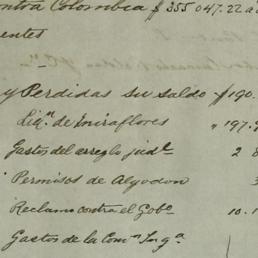 contra Colombia $ 355 047.22 a
entes
y Perdidas su saldo $190.
Liqn. de Miraflores " 197.9
Gastos del arreglo judl. 2 8
Permisos de Algodon 3
Reclamo contra el Gobo. 10.1
Gastos de la Comn. Inga.